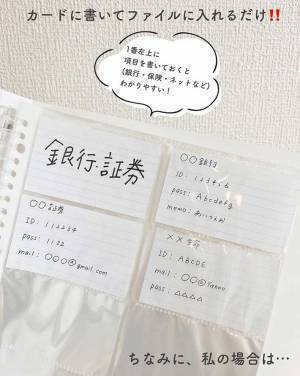 カードに書いてファイルに入れるだけ‼
1番左上に
項目を書いておくと
(銀行・保険・ネットなど)
わかりやすい！
銀行・証券
〇〇銀行
ID: 123456
pass: Abcdefg
memo: あいうえお
〇〇証券
ID: 112234
pass: 1122
mail: 〇〇〇@gmail.com
××生命
ID: ABCDE
mail: 〇〇@Yahoo
pass: △△△△
ちなみに、私の場合は…